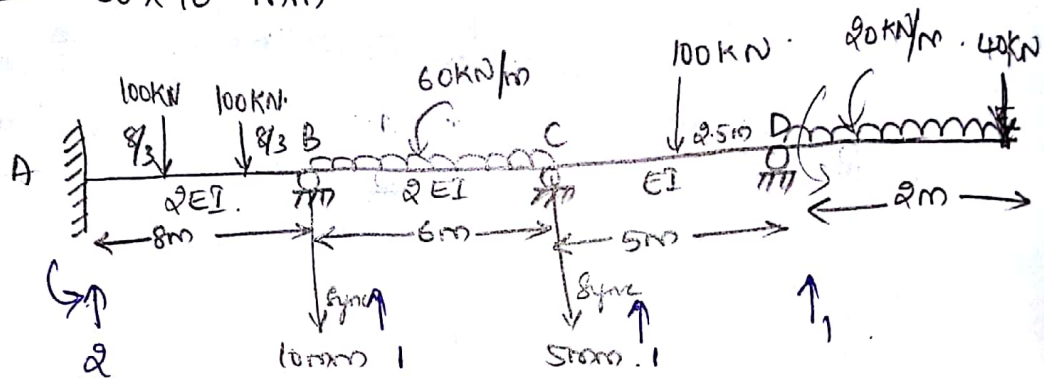 100KN 100KN. 60KN/m 100KN. 20KN/m. 40KN
A 8/3 8/3 B C 2.5m D
2EI. 2EI EI
8m 6m 5m 2m
2 10mm 1 5mm. 1 1